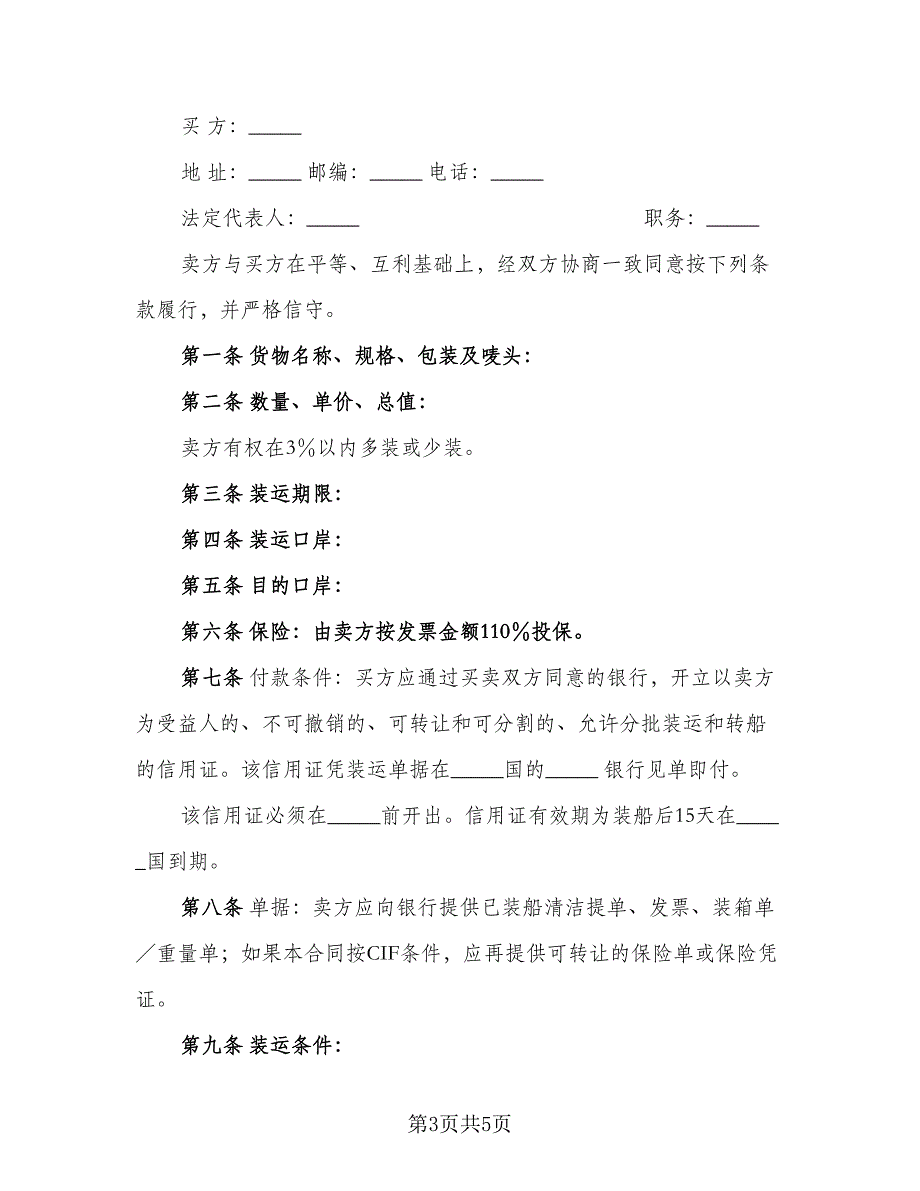 买 方：_____
地 址：_____ 邮编：_____ 电话：_____
法定代表人：_____ 职务：_____
卖方与买方在平等、互利基础上，经双方协商一致同意按下列条
款履行，并严格信守。
第一条 货物名称、规格、包装及唛头：
第二条 数量、单价、总值：
卖方有权在3％以内多装或少装。
第三条 装运期限：
第四条 装运口岸：
第五条 目的口岸：
第六条 保险：由卖方按发票金额110％投保。
第七条 付款条件：买方应通过买卖双方同意的银行，开立以卖方
为受益人的、不可撤销的、可转让和可分割的、允许分批装运和转船
的信用证。该信用证凭装运单据在_____国的_____ 银行见单即付。
该信用证必须在_____前开出。信用证有效期为装船后15天在____
_国到期。
第八条 单据：卖方应向银行提供已装船清洁提单、发票、装箱单
／重量单；如果本合同按CIF条件，应再提供可转让的保险单或保险凭
证。
第九条 装运条件：
第3页共5页